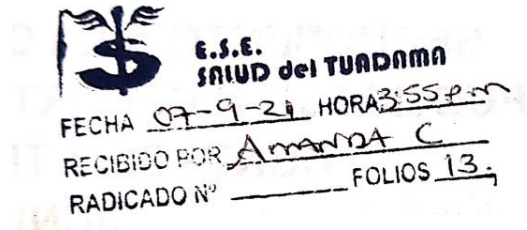 E.S.E.
SALUD del TUNDAMA
FECHA 07-9-21 HORA 3:55 p.m
RECIBIDO POR Amanda C
RADICADO Nº ________ FOLIOS 13.